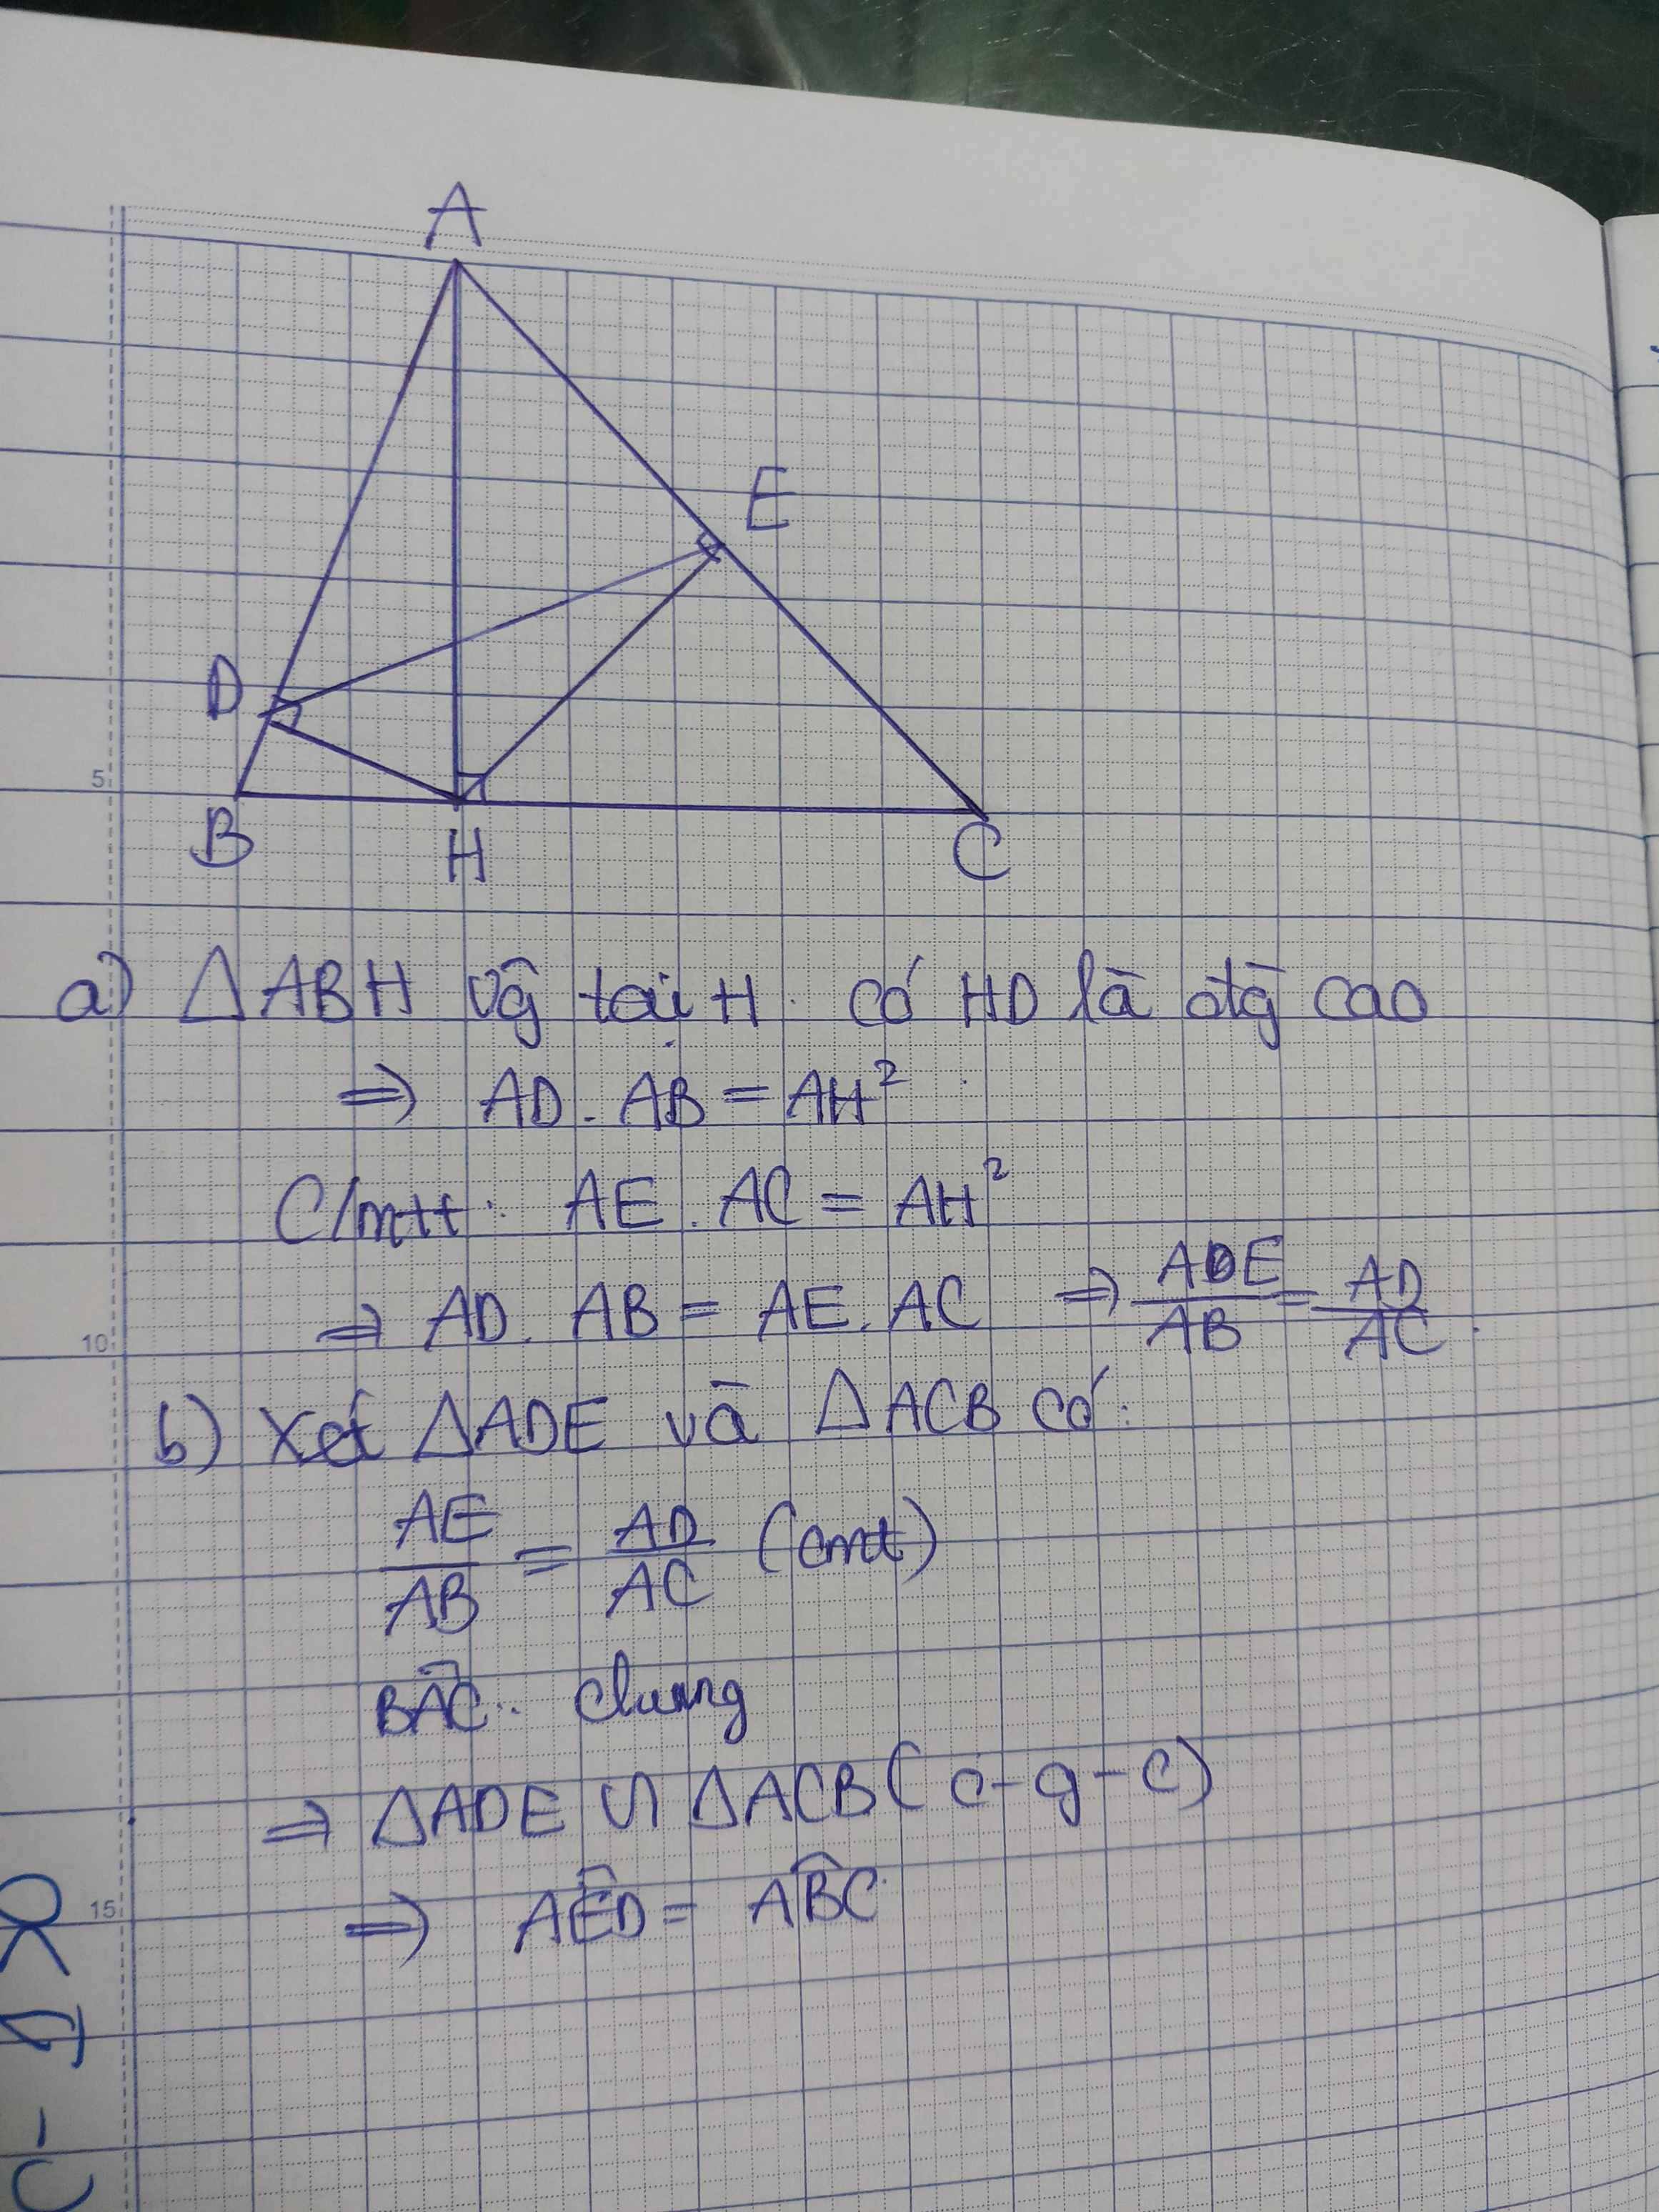 A
E
D
5
B H C
a) △ABH vg tại H. có HD là đg cao
⇒ AD . AB = AH²
C/mtt: AE . AC = AH²
⇒ AD . AB = AE . AC ⇒ AE/AB = AD/AC .
10
b) Xét △ADE và △ACB có:
AE/AB = AD/AC (cmt)
BÂC: chung
⇒ △ADE ∽ △ACB (c-g-c)
15
⇒ AÊD = AB̂C